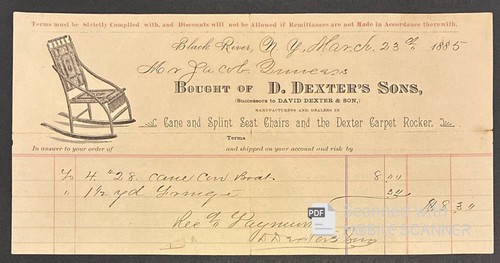 Terms must be Strictly Complied with, and Discounts will not be Allowed if Remittances are not Made in Accordance therewith.
Black River, N.Y. March 23rd, 1885
Mr Jacob
BOUGHT OF D. DEXTER'S SONS,
(Successors to DAVID DEXTER & SON,)
MANUFACTURERS AND DEALERS IN
Cane and Splint Seat Chairs and the Dexter Carpet Rocker.
Terms
In answer to your order of and shipped on your account and risk by
To 4 #28 Cane Boat. 8 "
" yd Fringe
Rec'd Payment
D Dexter Sons
PDF
Scanned with
MOBILE SCANNER